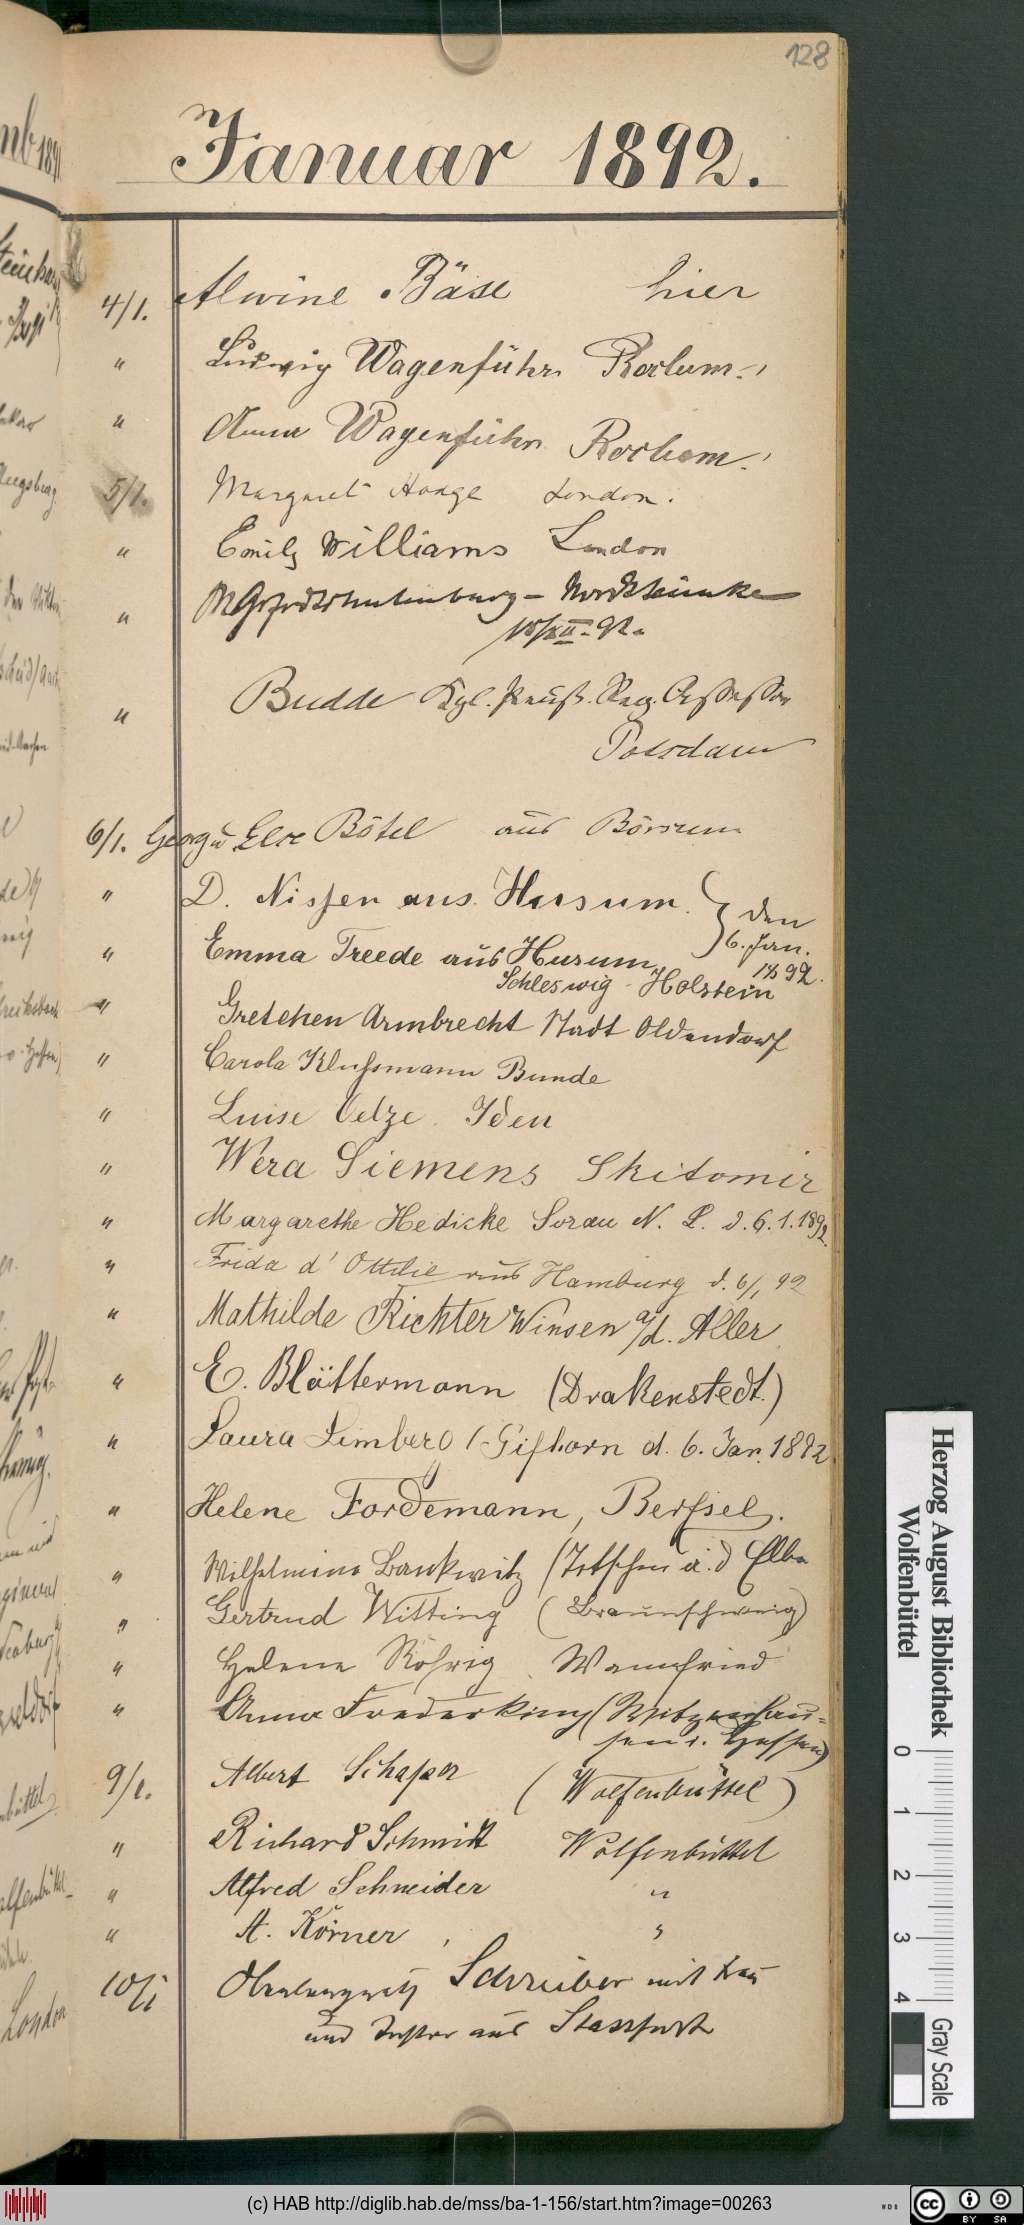 128
Januar 1892.
4/1. Alwine Bäse hier
" Ludwig Wagenführ Roclum.
" Anna Wagenführ Roclum.
5/1. Margaret Hoage London.
" Emily Williams London
"
Budde Kgl. Preuß. Reg. Assessor
" Potsdam
6/1. Georg u Else Bötel aus Börssum
" D. Nissen aus Husum. den
" Emma Treede aus Husum 6. Jan.
Schleswig-Holstein 1892.
" Gretchen Armbrecht Stadt Oldendorf
" Carola Klussmann Bunde
" Luise Oelze. Iden
" Wera Siemens Skitomir
" Margarethe Hedicke Sorau N. L. d. 6. 1. 1892.
" Frida d'Ottilie aus Hamburg d. 6/1 92
" Mathilde Richter Winsen a/d. Aller
" E. Blättermann (Drakenstedt.)
" Laura Limberg (Gifhorn d. 6. Jan. 1892
" Helene Fordemann, Berssel.
" Wilhelmine Bankwitz a. d Elbe
" Gertrud Witting (Braunschweig)
" Helene Röhrig Wannfried
" Anna Frederking (Witzenhau=
sen i. Hessen)
9/1. Albert Schaper (Wolfenbüttel)
" Richard Schmidt Wolfenbüttel
" Alfred Schneider "
" A. Körner, "
10/1 Schreiber mit Frau
und Tochter aus Stassfurt
Herzog August Bibliothek
Wolfenbüttel
0 1 2 3 4 Gray Scale
(c) HAB http://diglib.hab.de/mss/ba-1-156/start.htm?image=00263
WDB
cc BY SA